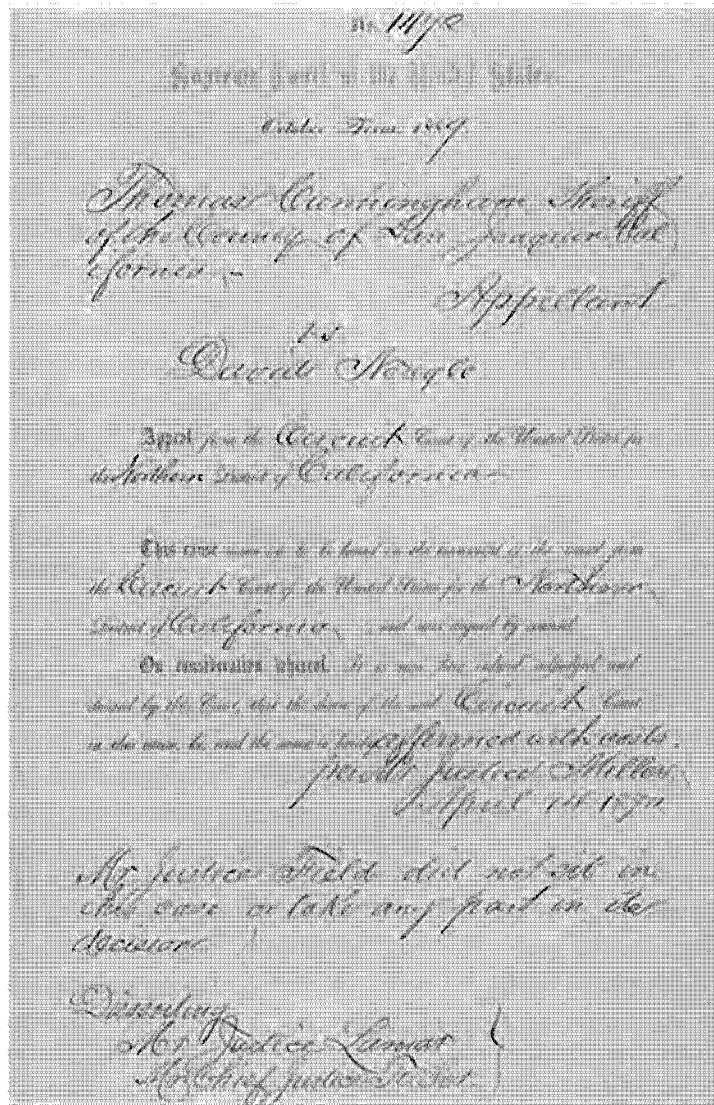 No. 1472
Supreme Court of the United States.
October Term, 1889
Thomas Cunningham Sheriff
of the County of San Joaquin Cal
ifornia
Appellant
vs.
David Neagle
Appeal from the Circuit Court of the United States for
the Northern District of California
This cause came on to be heard on the transcript of the record from
the Circuit Court of the United States for the Northern
District of California, and was argued by counsel.
On consideration whereof, It is now here ordered, adjudged and
decreed by this Court, that the decree of the said Circuit Court
in this cause, be, and the same is hereby affirmed with costs.
per Mr Justice Miller
April 14 1890
Mr Justice Field did not sit in
this case or take any part in its
decision
Dissenting
Mr Justice Lamar
Mr Chief Justice Fuller